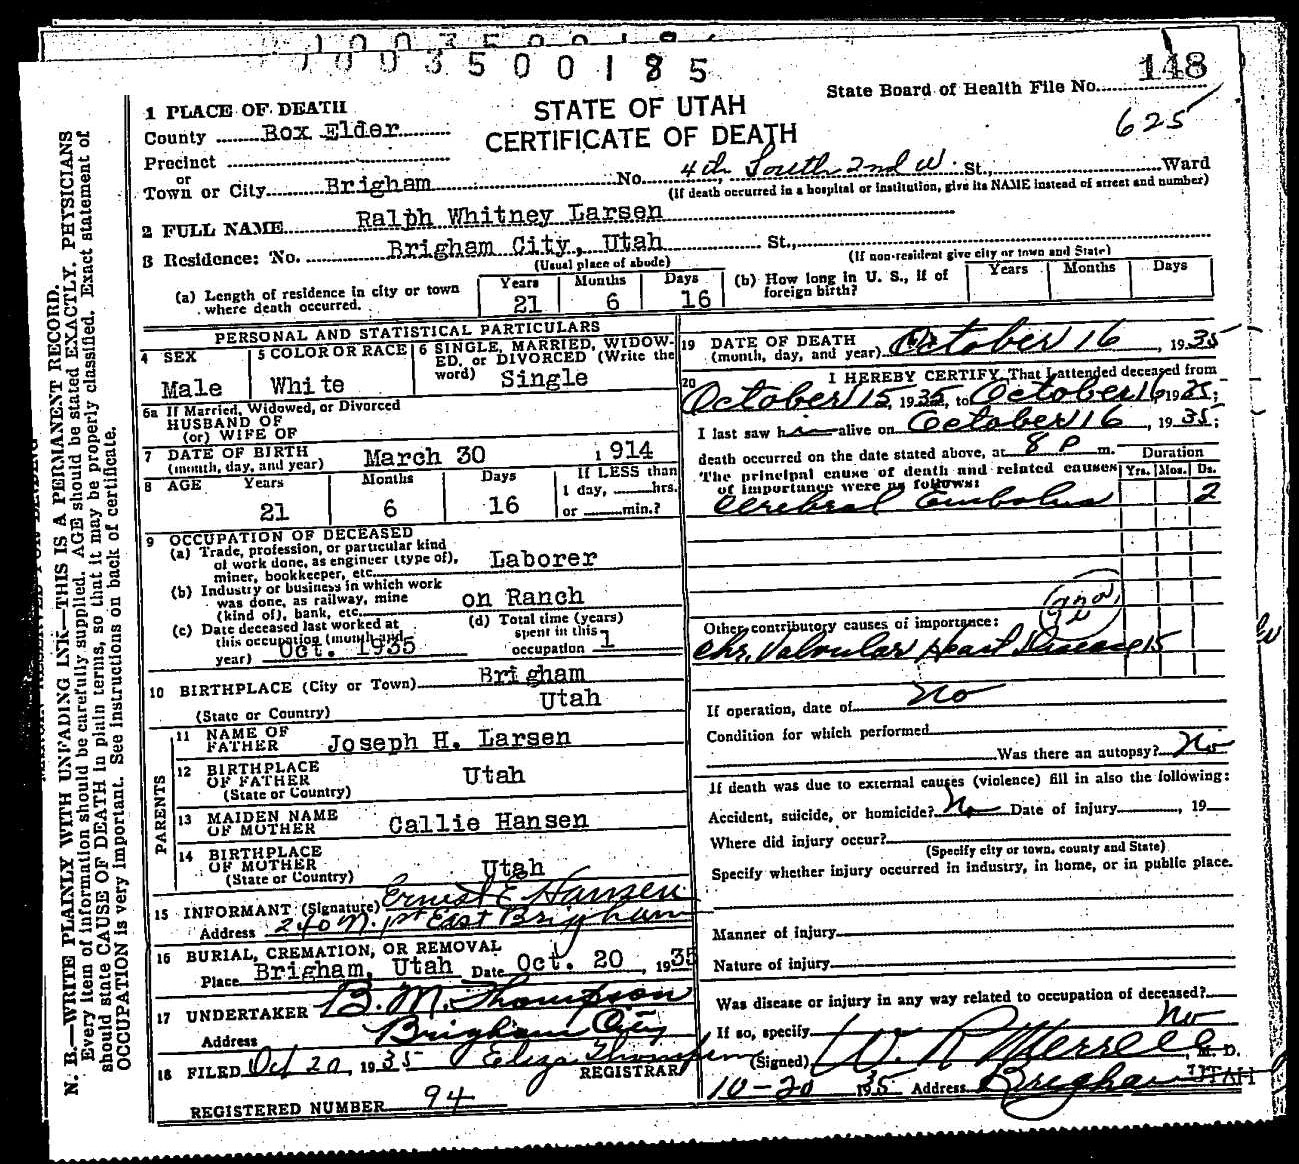 003500185
148
State Board of Health File No.
625
1 PLACE OF DEATH
STATE OF UTAH
CERTIFICATE OF DEATH
County Box Elder
Precinct
or
Town or City Brigham No. 4th South 2nd W. St., Ward
(If death occurred in a hospital or institution, give its NAME instead of street and number)
2 FULL NAME Ralph Whitney Larsen
3 Residence: No. Brigham City, Utah St.,
(Usual place of abode) (If non-resident give city or town and State)
(a) Length of residence in city or town where death occurred. Years 21 Months 6 Days 16
(b) How long in U. S., if of foreign birth? Years Months Days
PERSONAL AND STATISTICAL PARTICULARS
4 SEX Male
5 COLOR OR RACE White
6 SINGLE, MARRIED, WIDOWED, or DIVORCED (Write the word) Single
6a If Married, Widowed, or Divorced
HUSBAND OF
(or) WIFE OF
7 DATE OF BIRTH
(month, day, and year) March 30 1914
8 AGE Years 21 Months 6 Days 16 If LESS than 1 day, hrs. or min.?
9 OCCUPATION OF DECEASED
(a) Trade, profession, or particular kind
of work done, as engineer (type of),
miner, bookkeeper, etc. Laborer
(b) Industry or business in which work
was done, as railway, mine
(kind of), bank, etc. on Ranch
(c) Date deceased last worked at
this occupation (month and
year) Oct. 1935
(d) Total time (years)
spent in this
occupation 1
10 BIRTHPLACE (City or Town) Brigham
(State or Country) Utah
PARENTS
11 NAME OF
FATHER Joseph H. Larsen
12 BIRTHPLACE
OF FATHER
(State or Country) Utah
13 MAIDEN NAME
OF MOTHER Callie Hansen
14 BIRTHPLACE
OF MOTHER
(State or Country) Utah
15 INFORMANT (Signature) Ernest E Hansen
Address 240 N. 1st East Brigham
16 BURIAL, CREMATION, OR REMOVAL
Place Brigham, Utah Date Oct. 20, 1935
17 UNDERTAKER B. M. Thompson
Address Brigham City
18 FILED Oct 20, 1935 Eliza Thompson
REGISTRAR
REGISTERED NUMBER 94
19 DATE OF DEATH
(month, day, and year) October 16, 1935
20 I HEREBY CERTIFY That I attended deceased from
October 15, 1935, to October 16 1935;
I last saw him alive on October 16, 1935;
death occurred on the date stated above, at 8 P m.
The principal cause of death and related causes
of importance were as follows:
Duration
Yrs. Mos. Ds.
Cerebral Embolus 2
Other contributory causes of importance:
Chr. Valvular Heart Disease 15
If operation, date of No
Condition for which performed
Was there an autopsy? No
If death was due to external causes (violence) fill in also the following:
Accident, suicide, or homicide? No Date of injury , 19
Where did injury occur?
(Specify city or town, county and State)
Specify whether injury occurred in industry, in home, or in public place.
Manner of injury
Nature of injury
Was disease or injury in any way related to occupation of deceased?
No
If so, specify
(Signed) W. R. Merrell, M. D.
10-20 1935 Address Brigham UTAH
N. B.—WRITE PLAINLY WITH UNFADING INK—THIS IS A PERMANENT RECORD.
Every item of information should be carefully supplied. AGE should be stated EXACTLY. PHYSICIANS
should state CAUSE OF DEATH in plain terms, so that it may be properly classified. Exact statement of
OCCUPATION is very important. See instructions on back of certificate.